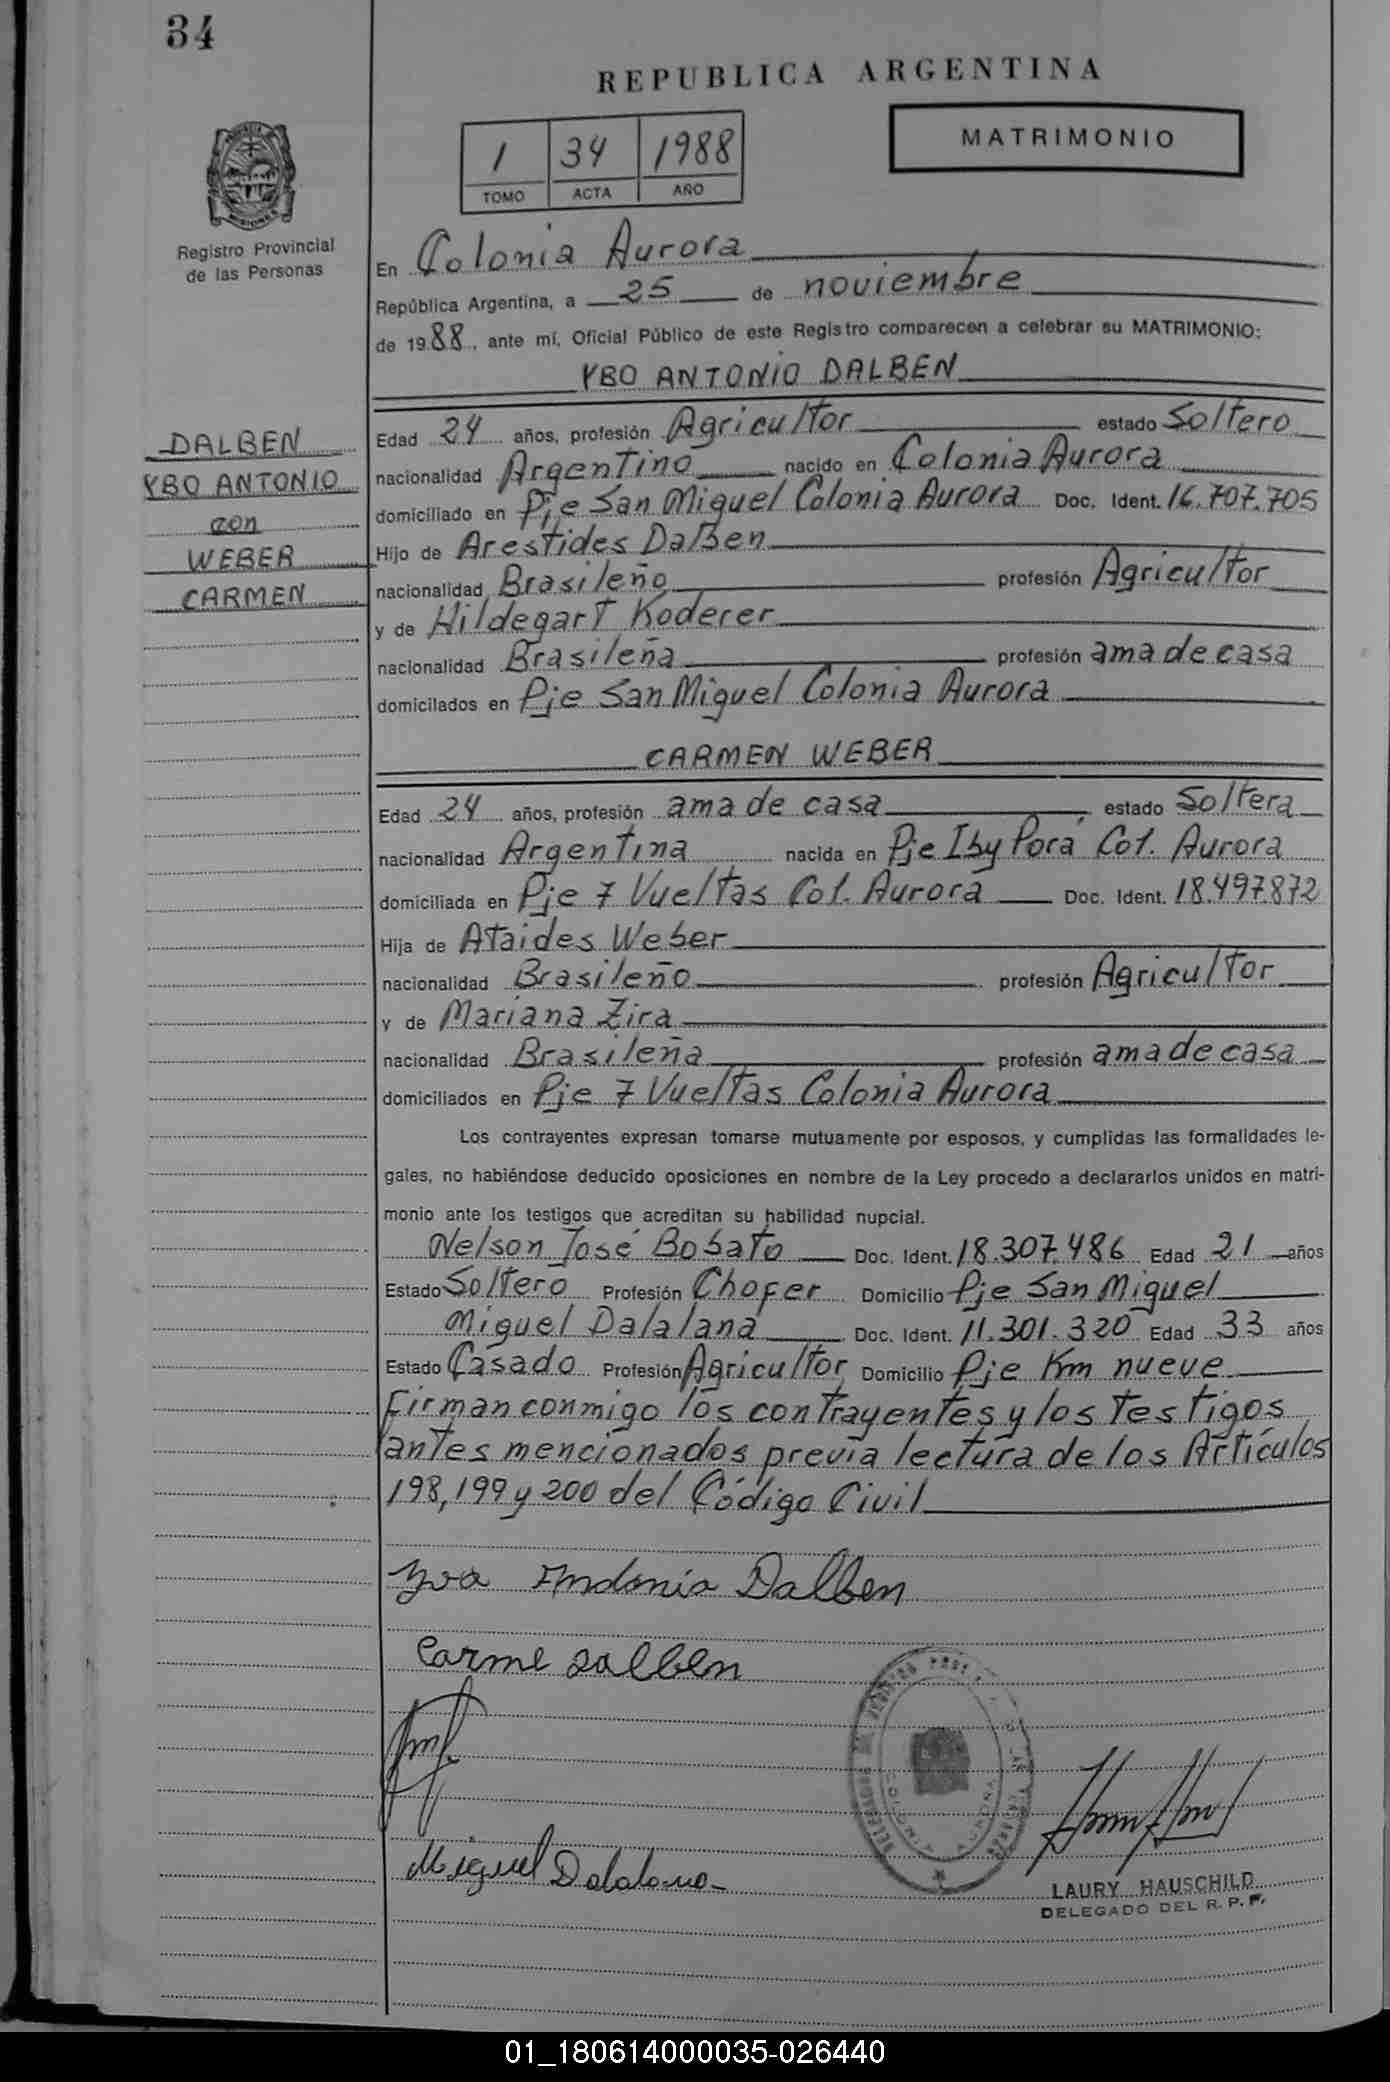 34
REPUBLICA ARGENTINA
1 34 1988
TOMO ACTA AÑO
MATRIMONIO
MISIONES
Registro Provincial
de las Personas
En Colonia Aurora
República Argentina, a 25 de noviembre
de 1988, ante mí, Oficial Público de este Registro comparecen a celebrar su MATRIMONIO:
YBO ANTONIO DALBEN
DALBEN
YBO ANTONIO
con
WEBER
CARMEN
Edad 24 años, profesión Agricultor estado Soltero
nacionalidad Argentino nacido en Colonia Aurora
domiciliado en Pje San Miguel Colonia Aurora Doc. Ident. 16.707.705
Hijo de Arestides DalBen
nacionalidad Brasileño profesión Agricultor
y de Hildegart Koderer
nacionalidad Brasileña profesión ama de casa
domicilados en Pje San Miguel Colonia Aurora
CARMEN WEBER
Edad 24 años, profesión ama de casa estado Soltera
nacionalidad Argentina nacida en Pje Iby Porá Col. Aurora
domiciliada en Pje 7 Vueltas Col. Aurora Doc. Ident. 18.497.872
Hija de Ataides Weber
nacionalidad Brasileño profesión Agricultor
y de Mariana Zira
nacionalidad Brasileña profesión ama de casa
domiciliados en Pje 7 Vueltas Colonia Aurora
Los contrayentes expresan tomarse mutuamente por esposos, y cumplidas las formalidades le-
gales, no habiéndose deducido oposiciones en nombre de la Ley procedo a declararlos unidos en matri-
monio ante los testigos que acreditan su habilidad nupcial.
Nelson José Bobato Doc. Ident. 18.307.486 Edad 21 años
Estado Soltero Profesión Chofer Domicilio Pje San Miguel
Miguel Dalalana Doc. Ident. 11.301.320 Edad 33 años
Estado Casado Profesión Agricultor Domicilio Pje Km nueve
Firman conmigo los contrayentes y los testigos
antes mencionados previa lectura de los Artículos
198, 199 y 200 del Código Civil
Yvo Andonio Dalben
Carme Dalben
Miguel Dalalana
COLONIA AURORA
LAURY HAUSCHILD
DELEGADO DEL R. P. P.
01_180614000035-026440